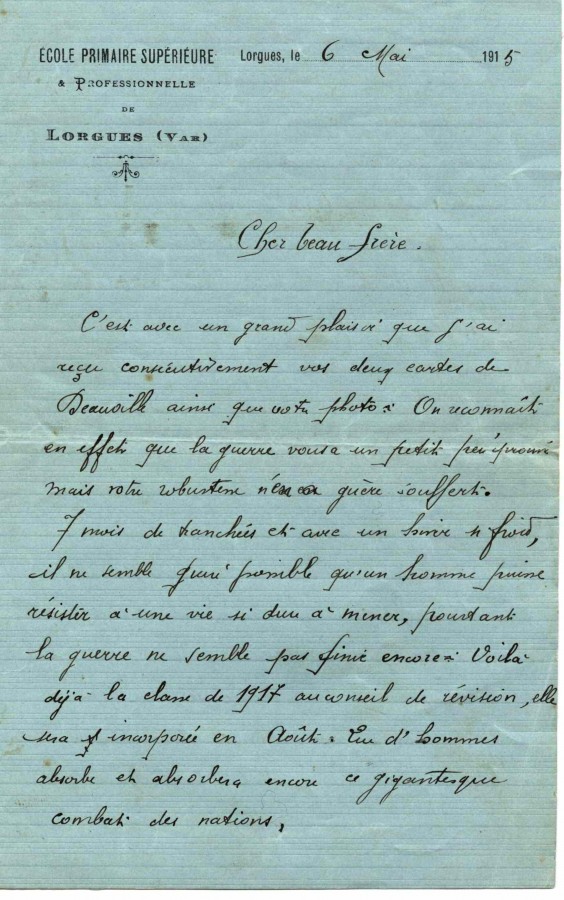 ÉCOLE PRIMAIRE SUPÉRIEURE
& PROFESSIONNELLE
DE
LORGUES (VAR)
Lorgues, le 6 Mai 1915
Cher beau frère.
C'est avec un grand plaisir que j'ai
reçu consécutivement vos deux cartes de
ainsi que votre photo. On reconnaît
en effet que la guerre vous a un petit peu éprouvé
mais votre robustesse n'en a guère souffert.
7 mois de tranchées et avec un hiver si froid,
il ne semble guère possible qu'un homme puisse
résister à une vie si dure à mener, pourtant
la guerre ne semble pas finie encore. Voilà
déjà la classe de 1917 au conseil de révision, elle
sera incorporée en Août. Que d'hommes
absorbe et absorbera encore ce gigantesque
combat des nations,